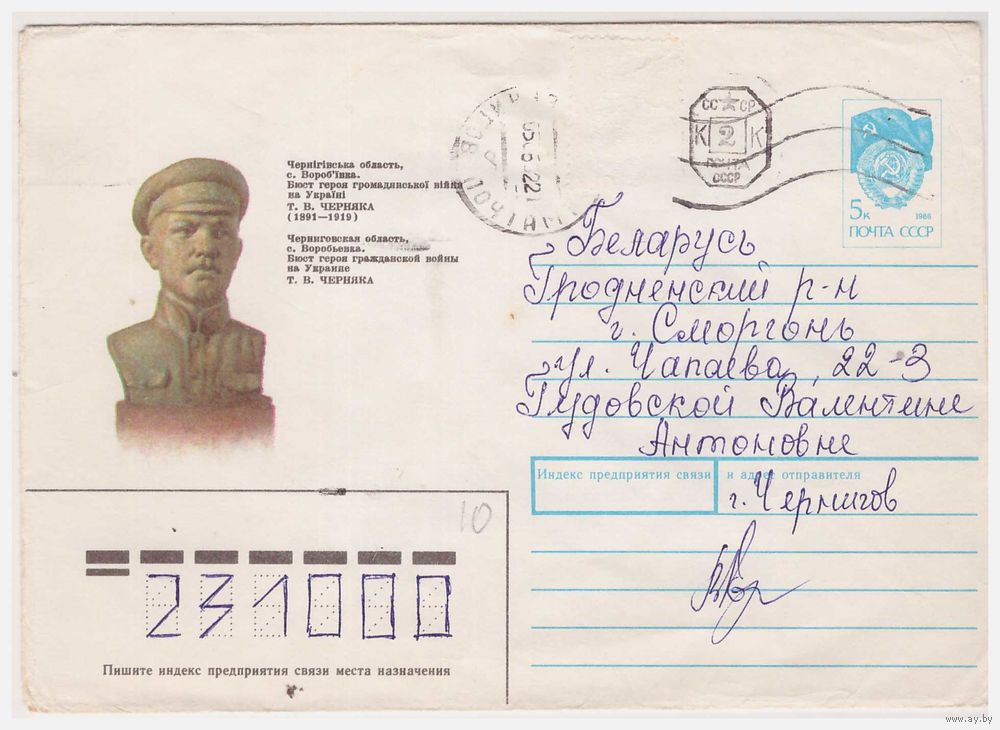 Чернігівська область,
с. Вороб'ївка.
Бюст героя громадянської війни
на Україні
Т. В. ЧЕРНЯКА
(1891—1919)
Черниговская область,
с. Воробьевка.
Бюст героя гражданской войны
на Украине
Т. В. ЧЕРНЯКА
ПОЧТАМТ
СС СР
К 2 К
ПОЧТА
СССР
5к 1988
ПОЧТА СССР
Беларусь
Гродненский р-н
г. Сморгонь
ул. Чапаева, 22-3
Гудовской Валентине
Антоновне
Индекс предприятия связи и адрес отправителя
г. Чернигов
10
231000
Пишите индекс предприятия связи места назначения
www.ay.by